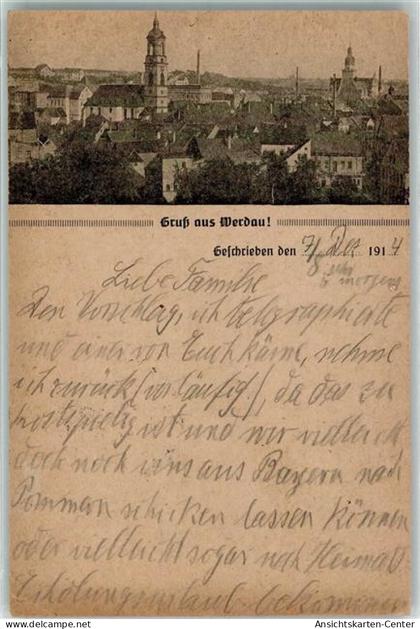 Gruß aus Werdau!
Geschrieben den 7/ Dez 1914
8 Uhr
morgens
Liebe Familie
Den Vorschlag, ich telegraphierte
und einer von Euch käme, nehme
ich zurück (vorläufig!), da das zu
kostspielig ist und wir vielleicht
doch noch uns aus Bayern nach
Pommern schicken lassen können
oder vielleicht sogar noch Heimat
Erholungsurlaub bekommen
Ansichtskarten-Center
ansichtskarten-center.delcampe.net